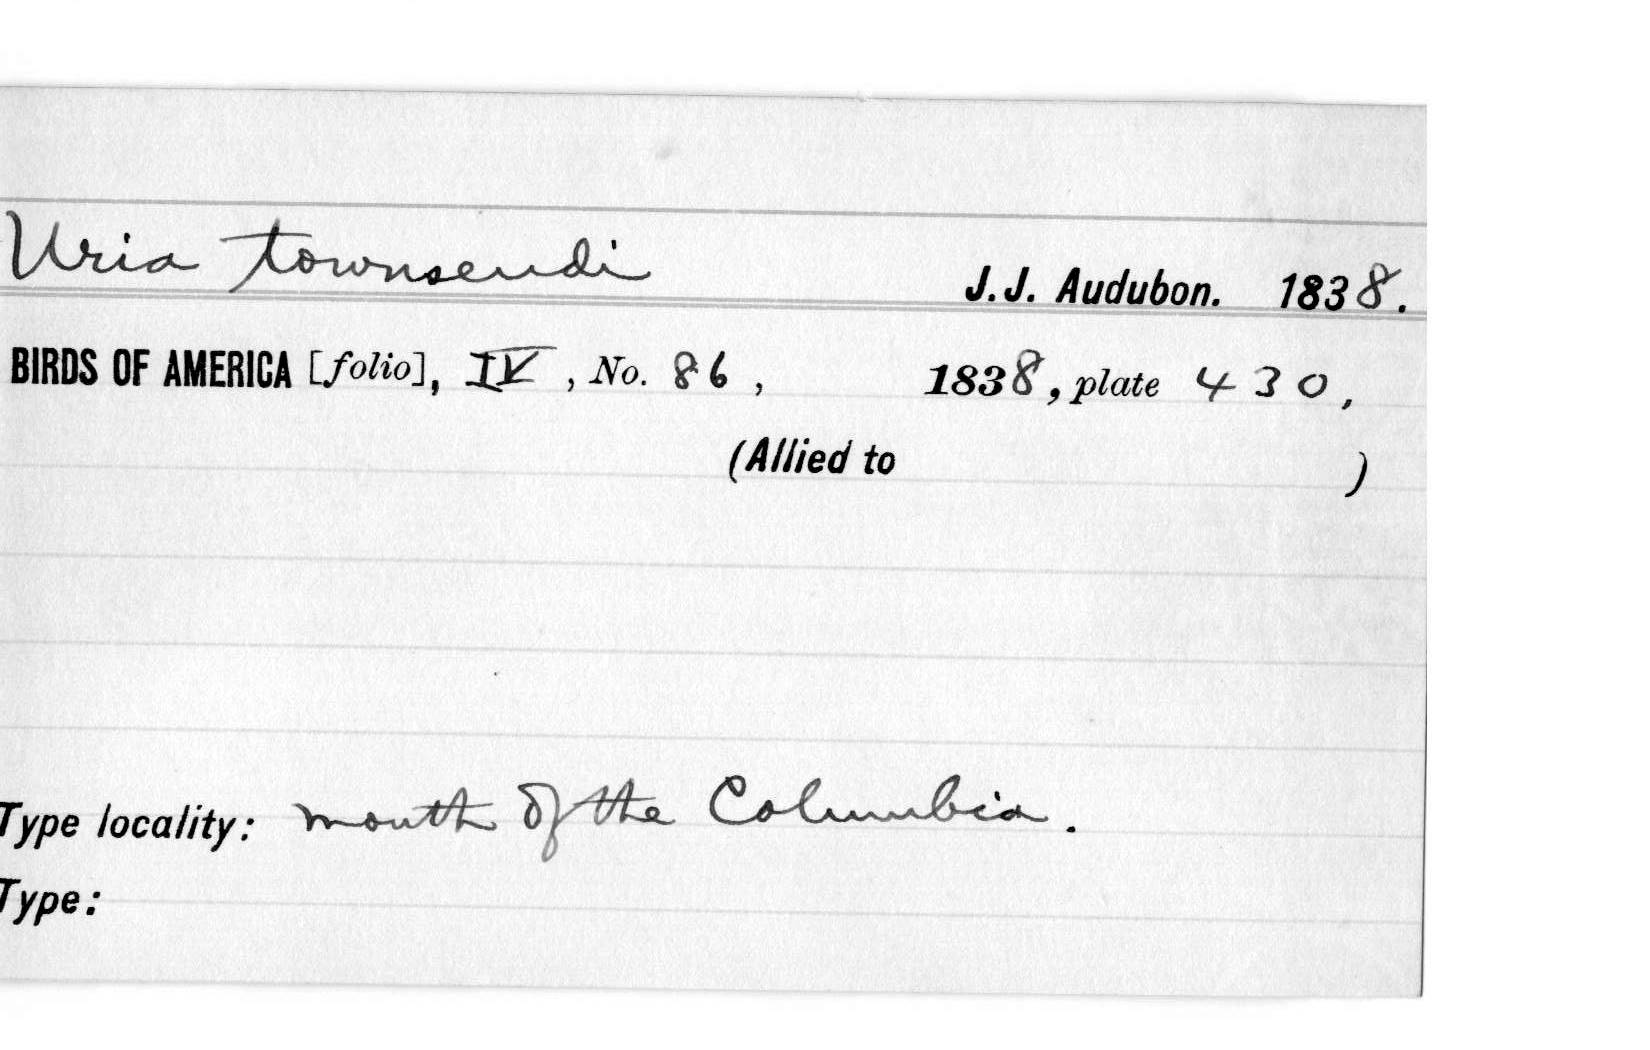 Uria townsendi J. J. Audubon. 1838.
BIRDS OF AMERICA [folio], IV, No. 86, 1838, plate 430,
(Allied to )
Type locality: mouth of the Columbia.
Type: